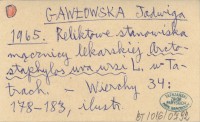 GAWŁOWSKA Jadwiga
1965. Reliktowe stanowiska
mącznicy lekarskiej Arcto-
staphylos uva ursi L. w Ta-
trach. - Wierchy 34:
178-183, ilustr.